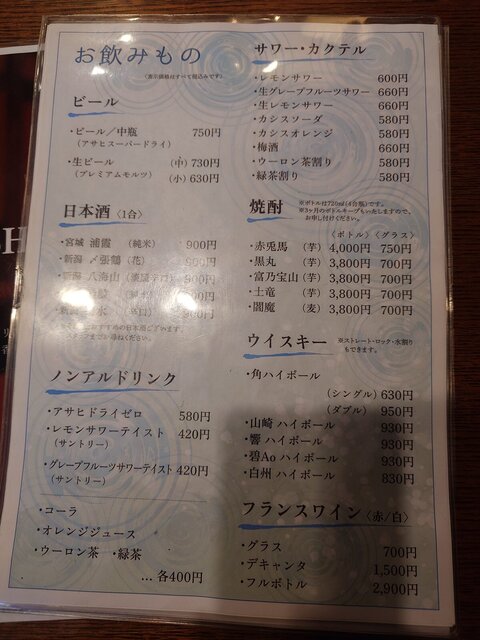 お飲みもの
〈表示価格はすべて税込みです〉
ビール
・ビール／中瓶 750円
（アサヒスーパードライ）
・生ビール （中）730円
（プレミアムモルツ） （小）630円
日本酒〈1合〉
・宮城 浦霞 （純米） 900円
・新潟 〆張鶴（花） 900円
・新潟 八海山 900円
900円
900円
おすすめの日本酒ございます。
スタッフまでお尋ねください。
ノンアルドリンク
・アサヒドライゼロ 580円
・レモンサワーテイスト 420円
（サントリー）
・グレープフルーツサワーテイスト 420円
（サントリー）
・コーラ
・オレンジジュース
・ウーロン茶 ・緑茶
… 各400円
サワー・カクテル
・レモンサワー 600円
・生グレープフルーツサワー 660円
・生レモンサワー 660円
・カシスソーダ 580円
・カシスオレンジ 580円
・梅酒 660円
・ウーロン茶割り 580円
・緑茶割り 580円
焼酎
※ボトルは720ml(4合瓶)です。
※3ヶ月のボトルキープもいたしますので、
お申し付けください。
〈ボトル〉〈グラス〉
・赤兎馬 （芋） 4,000円 750円
・黒丸 （芋） 3,800円 700円
・富乃宝山（芋） 3,800円 700円
・土竜 （芋） 3,800円 700円
・閻魔 （麦） 3,800円 700円
ウイスキー
※ストレート・ロック・水割り
もできます。
・角ハイボール
（シングル）630円
（ダブル） 950円
・山崎 ハイボール 930円
・響 ハイボール 930円
・碧Ao ハイボール 930円
・白州 ハイボール 830円
フランスワイン〈赤/白〉
・グラス 700円
・デキャンタ 1,500円
・フルボトル 2,900円